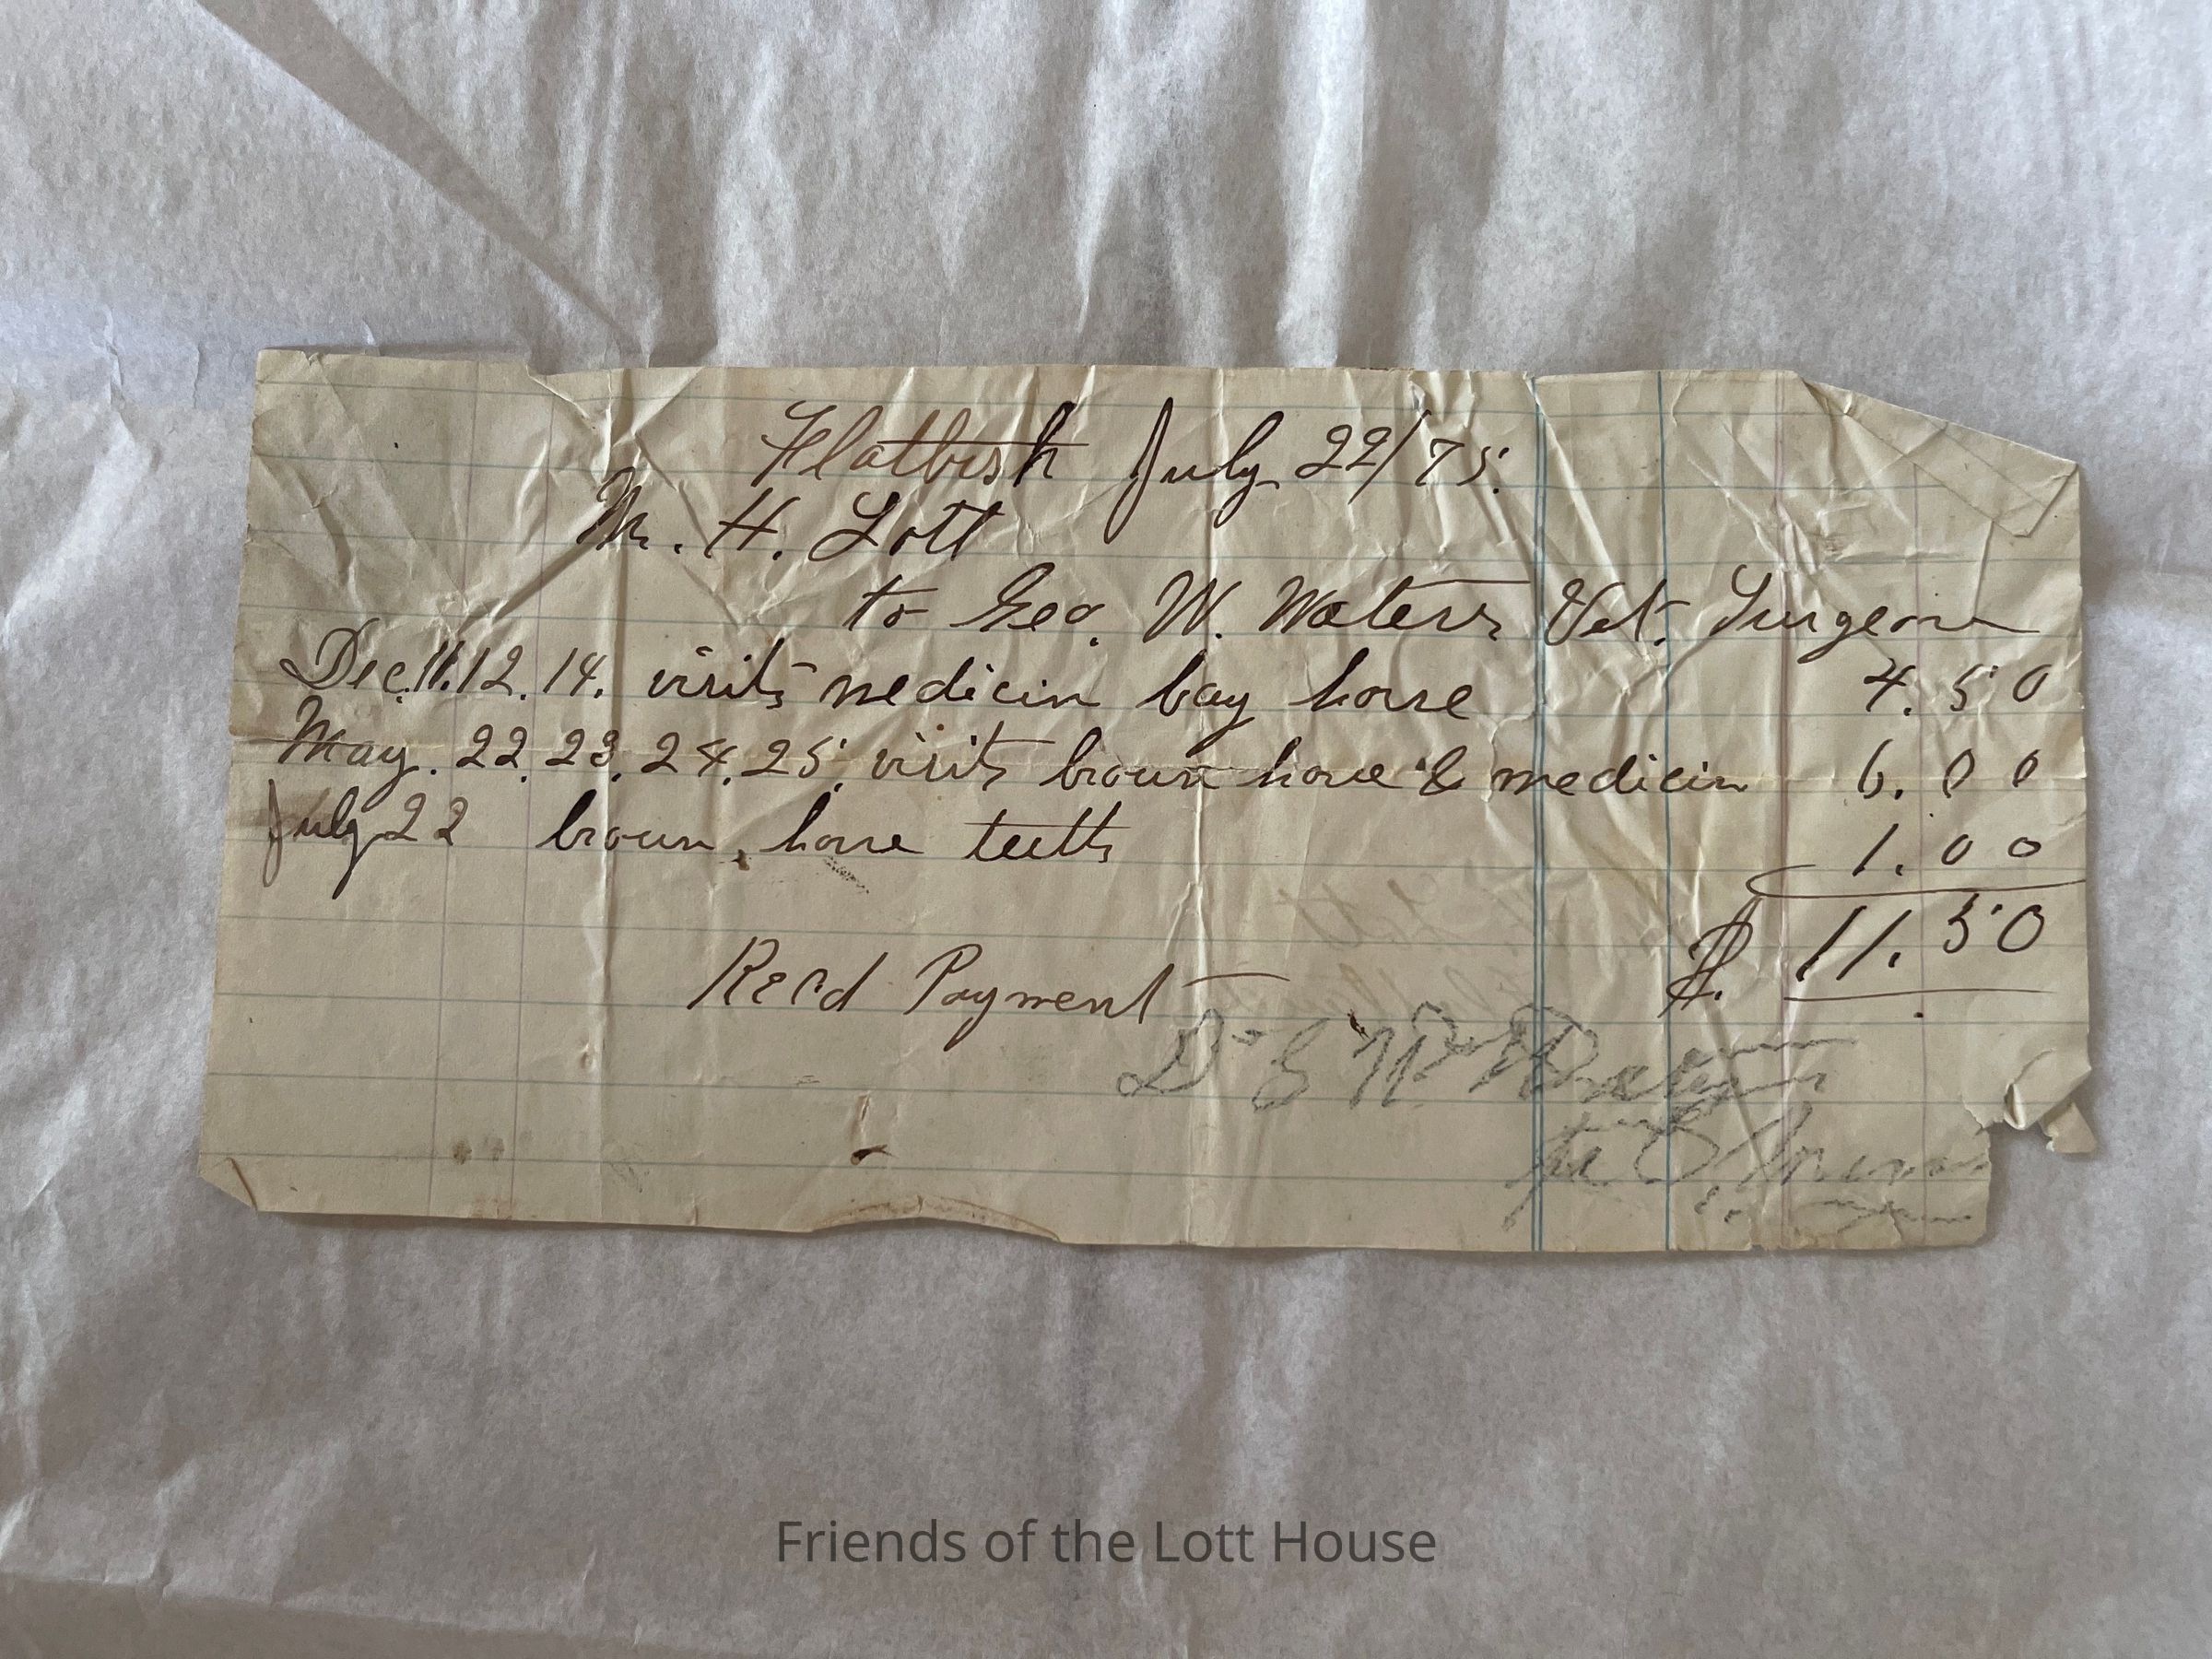 Flatbush July 22/75.
Mr. H. Lott
to Geo. W. Waters Vet. Surgeon
Dec. 11. 12. 14. visits medicin bay horse 4.50
May. 22. 23. 24. 25. visits brown horse & medicin 6.00
July 22 brown horse teeth 1.00
$. 11.50
Recd Payment
Dr G W Waters
Friends of the Lott House